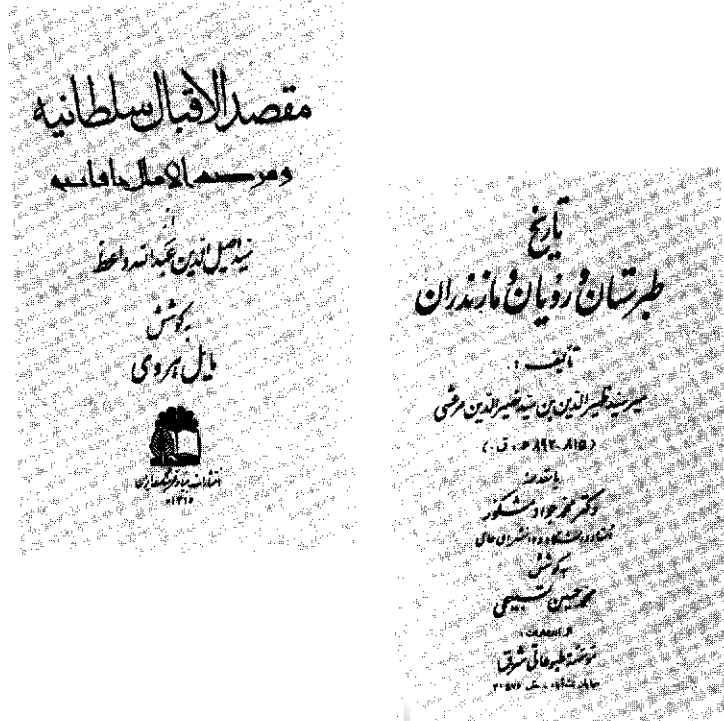 مقصد الاقبال سلطانیه
و مرصد الآمال خاقانیه
از
سید اصیل الدین عبدالله واعظ
به کوشش
مایل هروی
انتشارات بنیاد فرهنگ ایران
تاریخ
طبرستان و رویان و مازندران
تألیف :
میر سید ظهیرالدین بن سید نصیرالدین مرعشی
( ۸۱۵-۸۹۲ ه‍. ق. )
با مقدمه
دکتر محمد جواد مشکور
استاد دانشگاه و دانشسرای عالی
به کوشش
محمد حسین تسبیحی
از انتشارات:
مؤسسه مطبوعاتی شرق